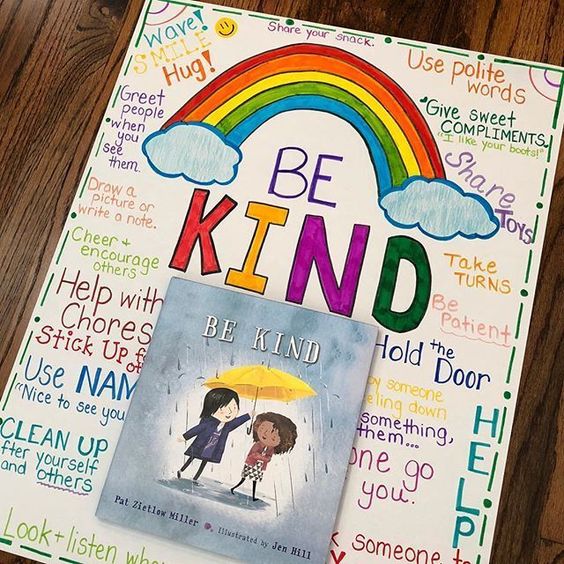 Wave!
SMILE
Hug!
Share your snack.
Use polite
words
Greet
people
when
you
see
them.
Give sweet
COMPLIMENTS.
"I like your boots!"
Share
Toys
BE
KIND
Draw a
picture or
write a note.
Take
TURNS
Cheer +
encourage
others
Be
Patient
Help with
Chores
Stick Up for
Hold the
Door
BE KIND
Pat Zietlow Miller
Illustrated by Jen Hill
Use NAM
"Nice to see you
by someone
feeling down
something,
them...
CLEAN UP
after yourself
and others
one go
you.
HELP
Look + listen when
k someone to